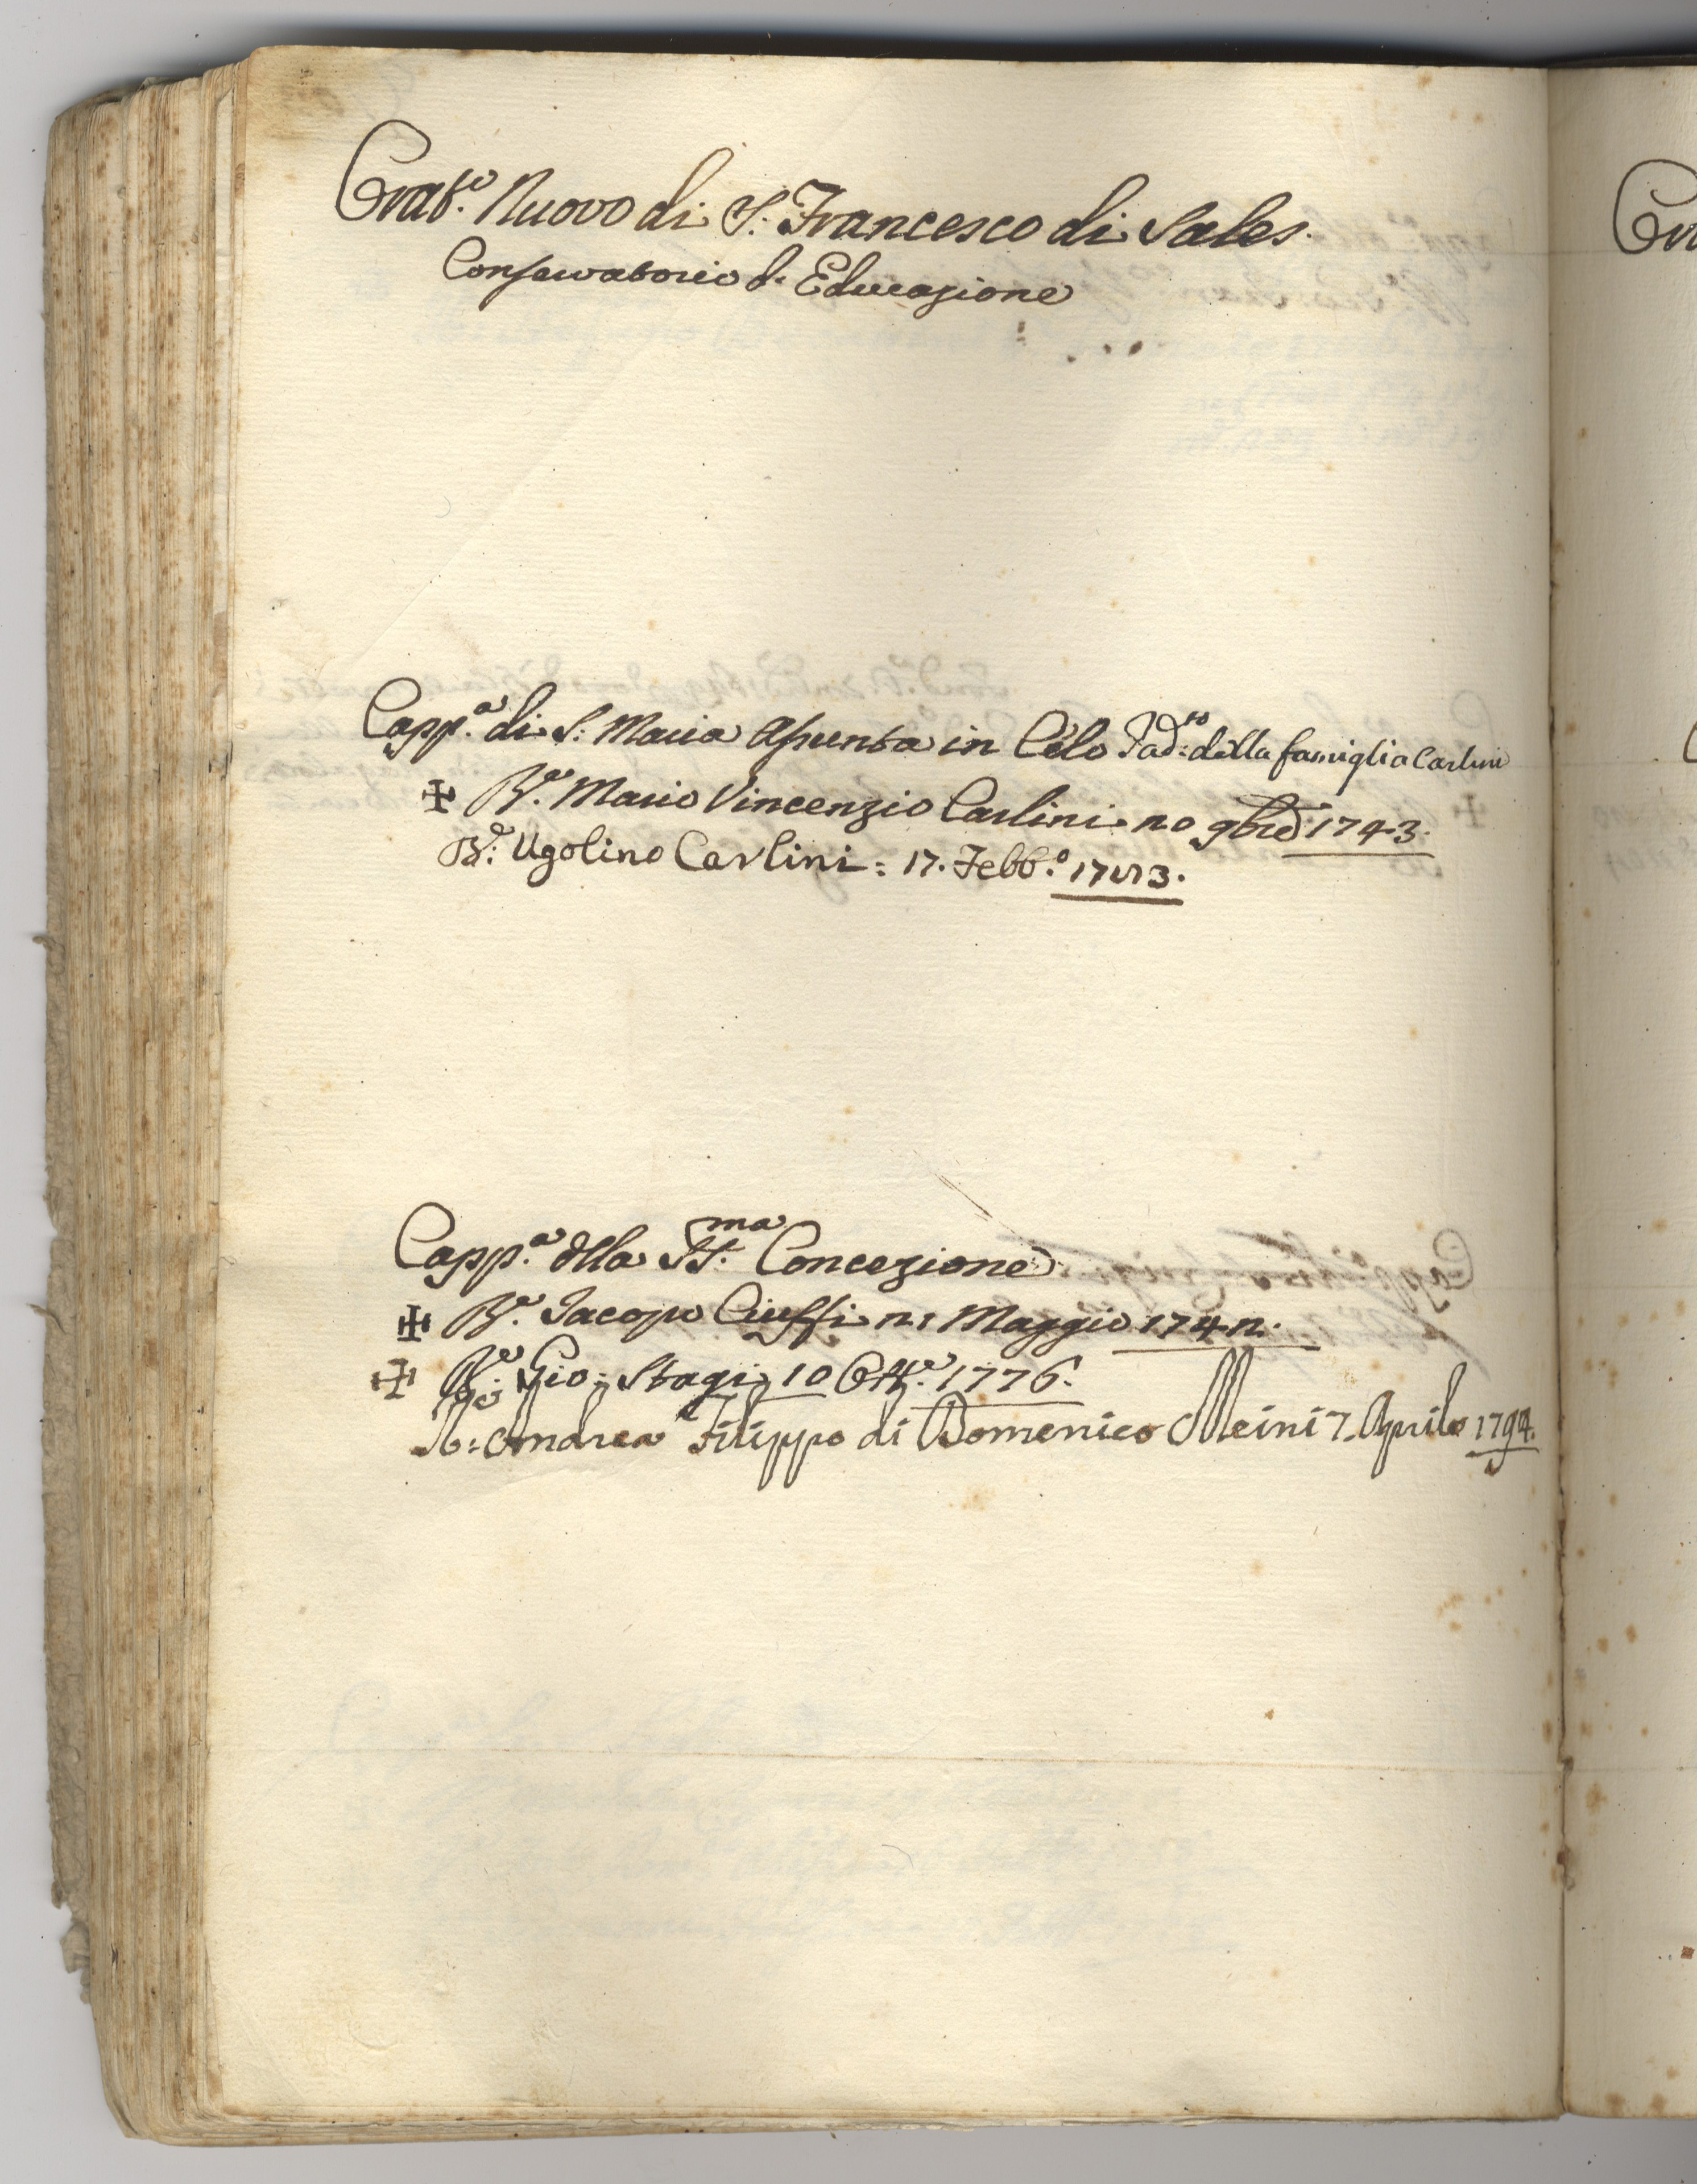 Orat.o Nuovo di S. Francesco di Sales.
Conservatorio d. Educazione
Capp.a di S: Maria Assunta in Cielo Pad:to della famiglia Carlini
✠ R.e Mario Vincenzio Carlini 20 9bre 1743.
R:e Ugolino Carlini: 17. Febb:o 1783.
Capp.a della SS.ma Concezione
✠ R.e Jacopo Ciuffi 21 Maggio 1742.
✠ R:e Gio: Stagi 10 Ott.e 1776.
R: Andrea Filippo di Domenico Meini 7. Aprile 1794.